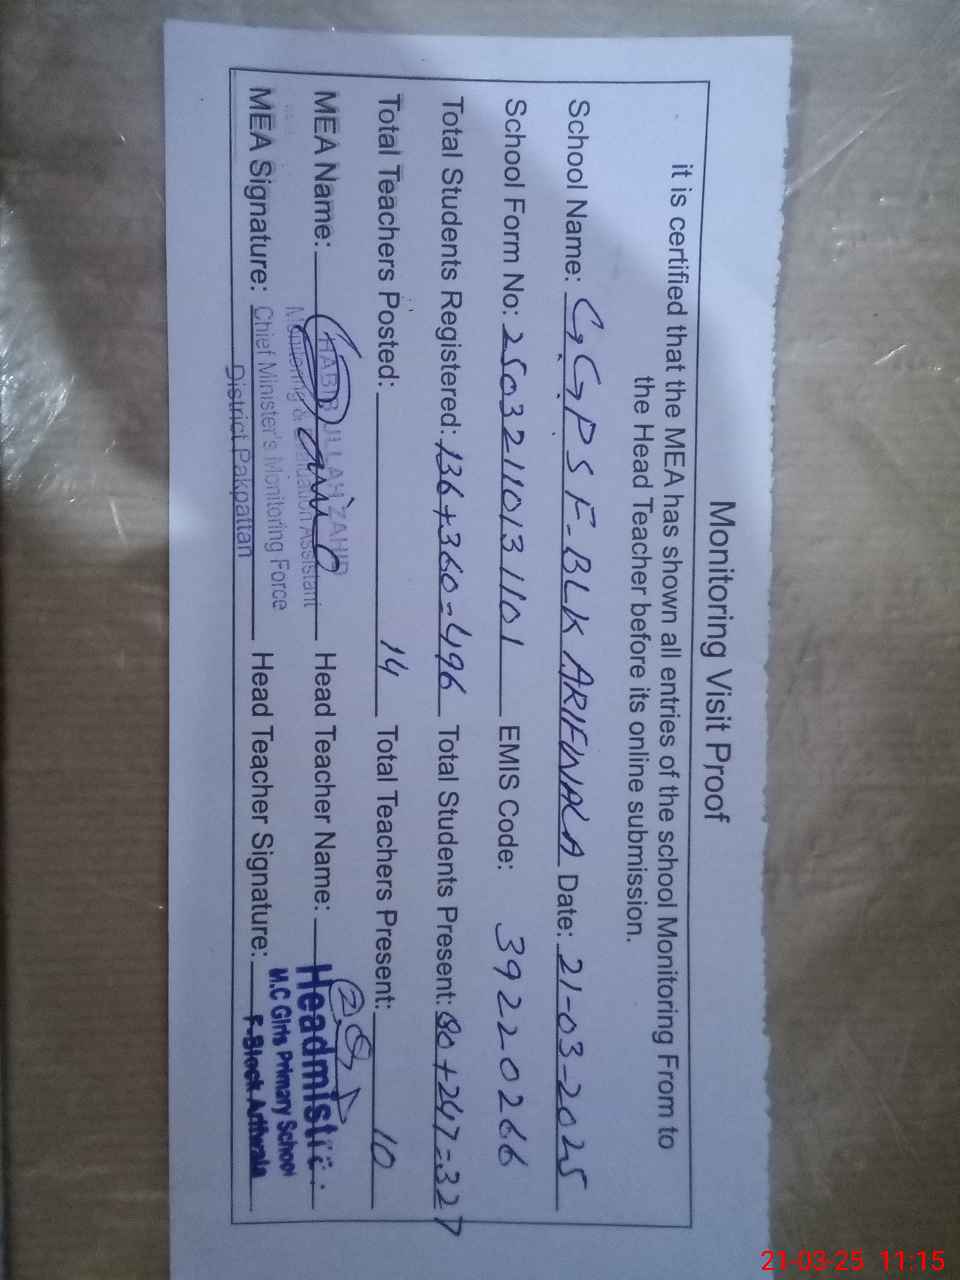 Monitoring Visit Proof
it is certified that the MEA has shown all entries of the school Monitoring From to
the Head Teacher before its online submission.
School Name: GGPS F-BLK ARIFWALA Date: 21-03-2025
School Form No: 25032110131101 EMIS Code: 39220266
Total Students Registered: 136+360=496 Total Students Present: 80+247=327
Total Teachers Posted: 14 Total Teachers Present: 10
MEA Name: HABIB ULLAH ZAHID Head Teacher Name: Headmistre
Monitoring & Evaluation Assistant M.C Girls Primary School
MEA Signature: Chief Minister's Monitoring Force Head Teacher Signature: F-Block Arifwala
District Pakpattan
21-03-25 11:15